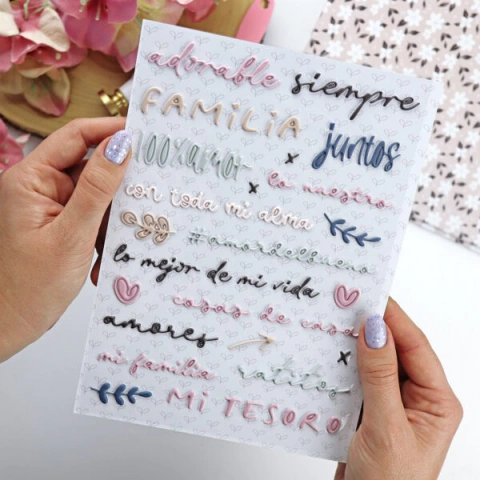 adorable siempre
FAMiLiA
juntos
lo nuestro
con toda mi alma
#amordelbueno
lo mejor de mi vida
cosas de casa
amores
mi familia ratitos
Mi TESORO